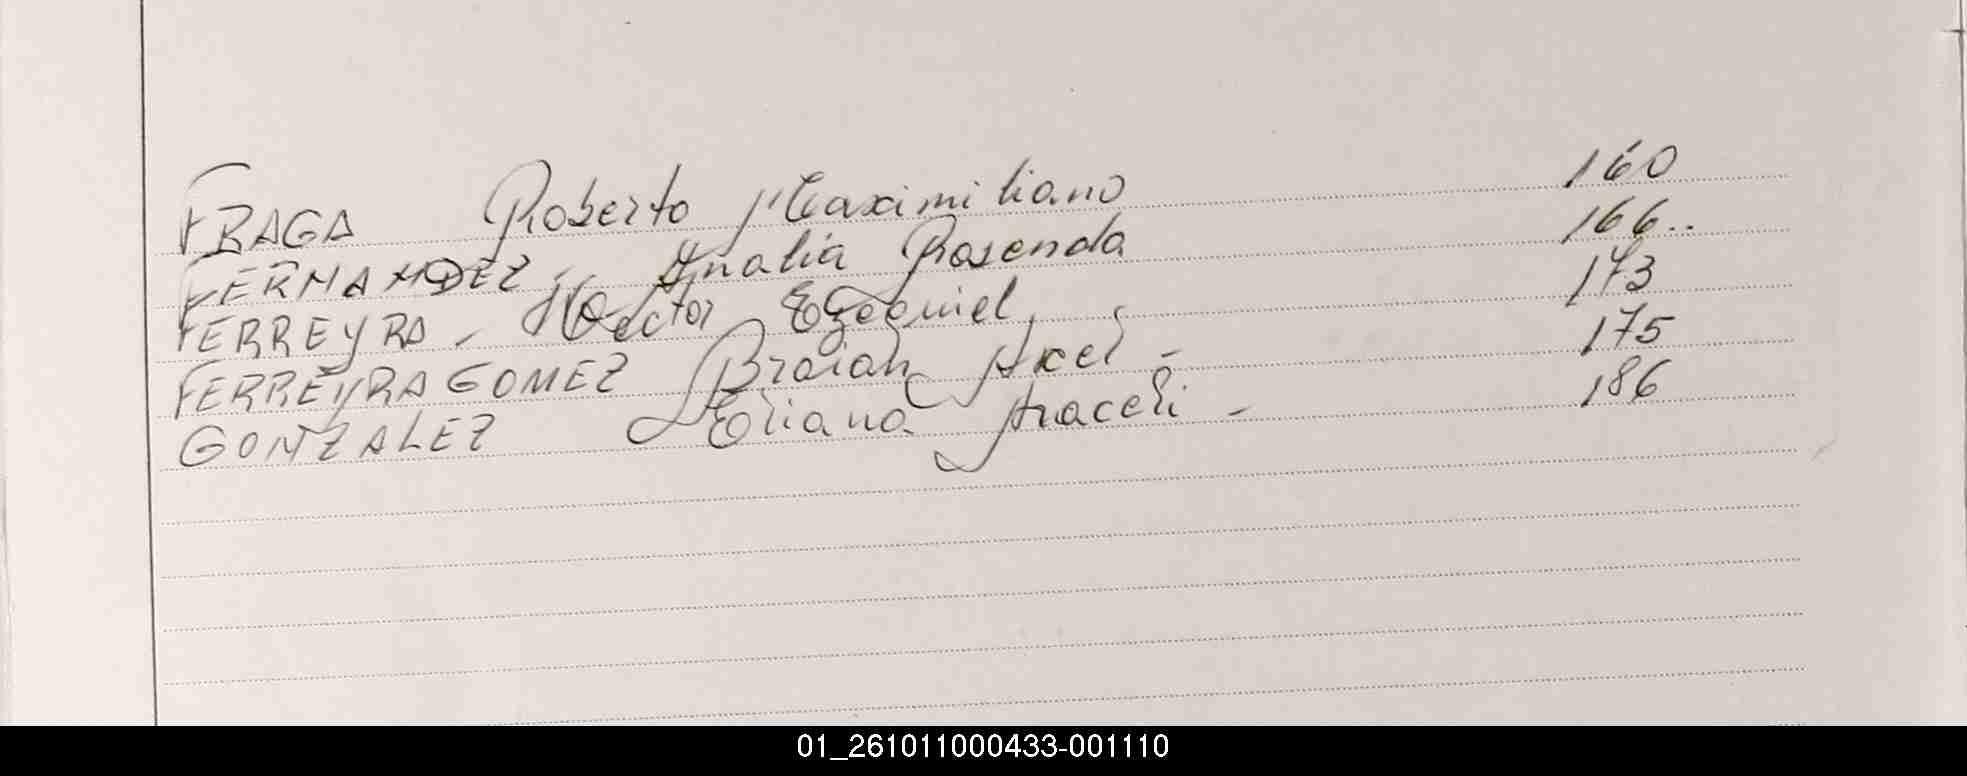 FRAGA Roberto Maximiliano 160
FERNANDEZ - Analia Rosenda 166..
FERREYRA - Hector Ezequiel 173
FERREYRA GOMEZ Braian Axel - 175
GONZALEZ Eliana Araceli - 186
01_261011000433-001110